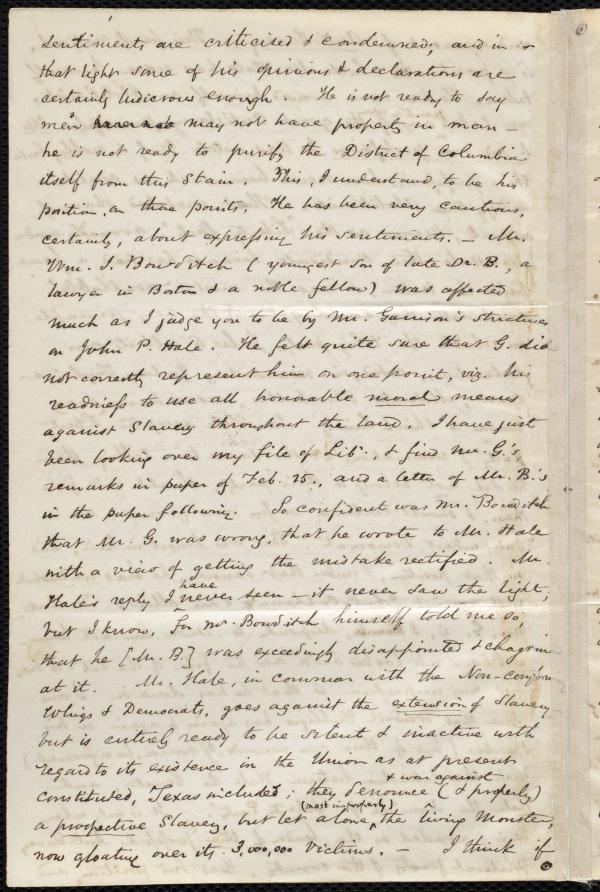 sentiments are criticised & condemned; and in
that light some of his opinions & declarations are
certainly ludicrous enough. He is not ready to say
men may not have property in man –
he is not ready to purify the District of Columbia
itself from this stain. This, I understand, to be his
position, on those points. He has been very cautious,
certainly, about expressing his sentiments. – Mr.
Wm. I. Bowditch (youngest son of late Dr. B., a
lawyer in Boston & a noble fellow) was affected
much as I judge you to be by Mr. Garrison's strictures
on John P. Hale. He felt quite sure that G. did
not correctly represent him on one point, viz. his
readiness to use all honorable moral means
against Slavery throughout the land. I have just
been looking over my file of Lib., & find Mr. G.'s
remarks in paper of Feb. 15., and a letter of Mr. B.'s
in the paper following. So confident was Mr. Bowditch
that Mr. G. was wrong, that he wrote to Mr. Hale
with a view of getting the mistake rectified. Mr.
Hale's reply I have never seen – it never saw the light,
but I know, for Mr. Bowditch himself told me so,
that he [Mr. B.] was exceedingly disappointed & chagrined
at it. Mr. Hale, in common with the Non-conform
Whigs & Democrats, goes against the extension of Slavery
but is entirely ready to be silent & inactive with
regard to its existence in the Union as at present
constituted, Texas included; they denounce & war against (& properly)
a prospective Slavery, but let alone (most improperly), the living Monster,
now gloating over its 3,000,000 victims. – I think if